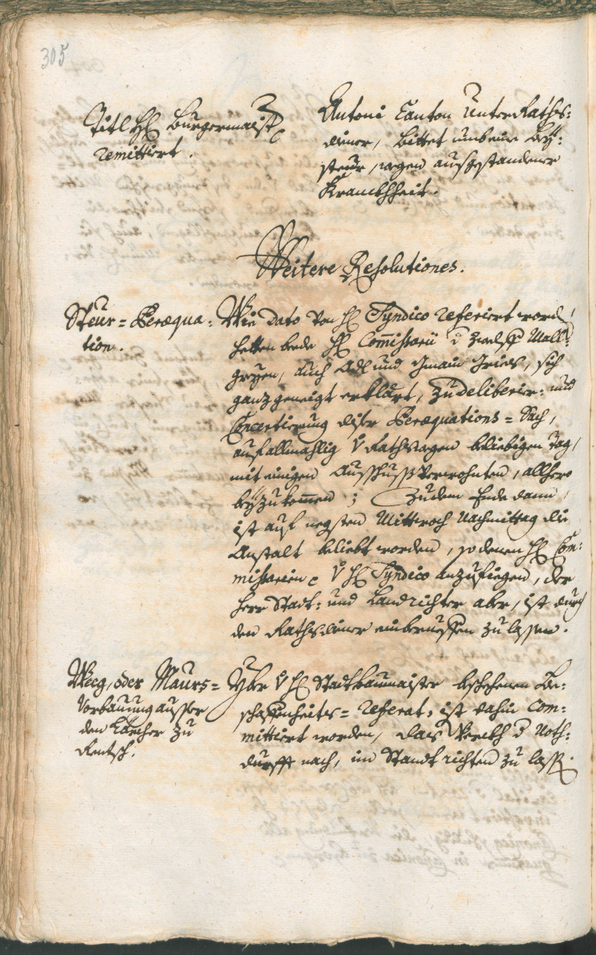 305
Titl H Burgermaist
remittiert.
Antoni Canton Unter Raths-
diener, bittet umb ein Bey-
steur, wegen ausgestandener
Kranckhheit.
Weitere Resolutiones.
Steur= Peræqua-
tion.
Wie dato von H Syndico referiert word
hetten bede H Commissarii
auch und gmain Gries, sich
ganz geneigt erklärt, zu deliberier- und
Concertierung diser Peræquations= Sach,
auf allmahlig Rathssagen beliebigen tag,
mit einigen Ausschuss Verwohnten, allhero
beyzukomen; Zu dem Ende dann
ist auf negsten Mittwoch Nachmittag die
Anstalt beliebt worden, so denen H Com-
missarien H Syndico anzufiegen, der
Herr Statt- und Landrichter aber, ist durch
den Rathsdiener einberueffen zu lassen.
Weeg, oder Maurs=
Vorbauung ausser
den Karcher zu
Rentsch.
Yber H Stattbaumaister beschehenen Be-
schaffenheits= referat, ist dahin Com-
mittiert worden, dass Werckh d Noth-
durfft nach, in Standt richten zu lass.